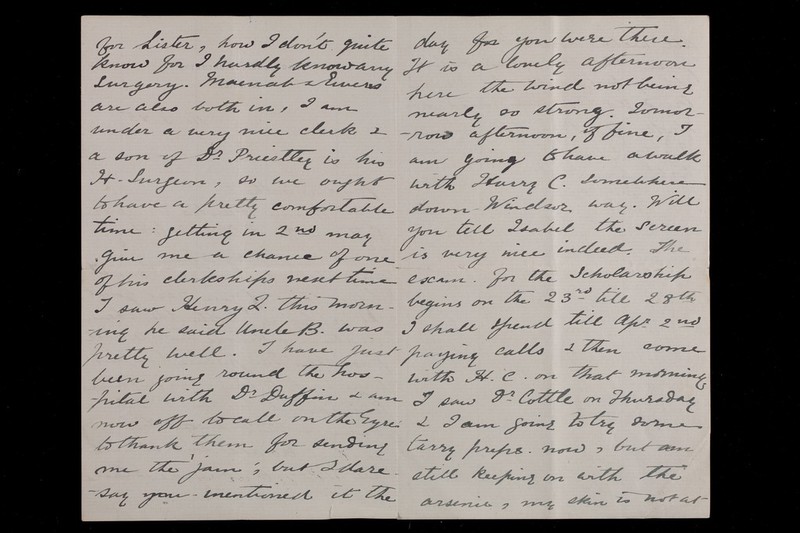 for Lister, how I don't quite
know for I hardly know any
Surgery. Macnab & Ivens
are also both in, I am
under a very nice clerk &
a son of Dr Priestley is his
H-Surgeon, so we ought
to have a pretty comfortable
time: getting in 2nd may
give me a chance of one
of his clerkships next time
I saw Henry L. this morn-
-ing he said Uncle B. was
pretty well. I have just
been going round the hos-
-pital with Dr Duffin & am
now off to call on the Eyre
to thank them for sending
me the 'jam', but I dare-
-say you mentioned it the
day for you were there.
It is a lovely afternoon
here the wind not being
nearly so strong. Tomor-
-row afternoon, if fine, I
am going to have a walk
with Harry C. somewhere
down Windsor way. Will
you tell Isabel the screen
is very nice indeed. The
exam. for the Scholarship
begins on the 23rd till 28th
I shall spend till Apr 2nd
paying calls & then come
with H. C. on that morning,
I saw Dr Cottle on Thursday
& I am going to try some
tarry preps. now, but am
still keeping on with the
arsenic, my skin is not at